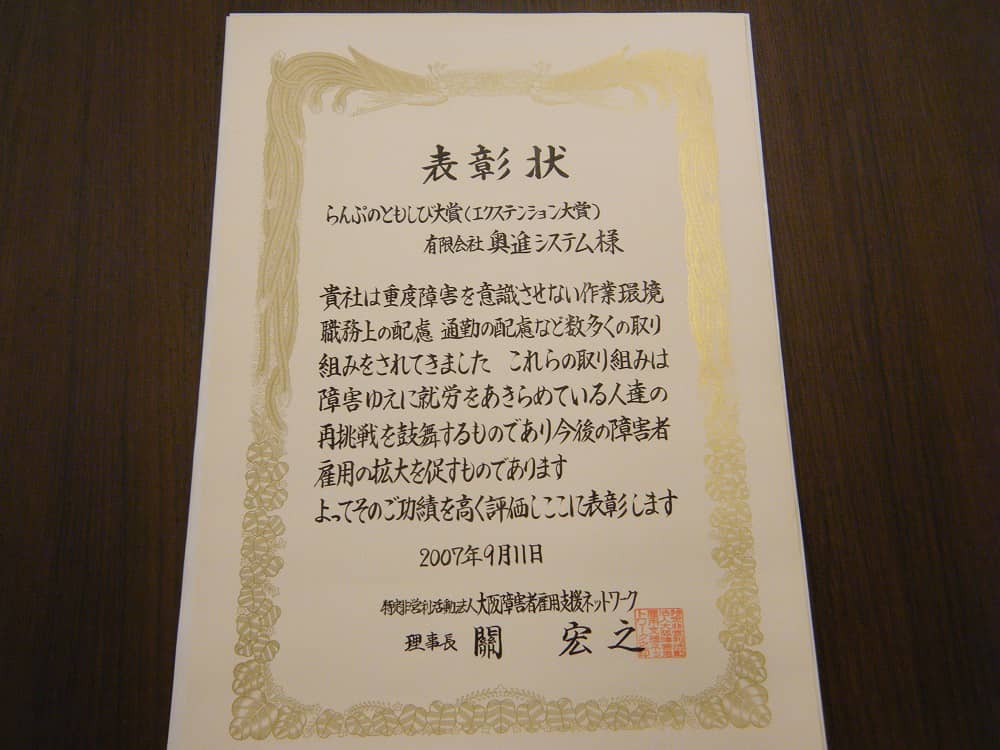 表彰状
らんぷのともしび大賞(エクステンション大賞)
有限会社 奥進システム様
貴社は重度障害を意識させない作業環境
職務上の配慮 通勤の配慮など数多くの取り
組みをされてきました これらの取り組みは
障害ゆえに就労をあきらめている人達の
再挑戦を鼓舞するものであり今後の障害者
雇用の拡大を促すものであります
よってそのご功績を高く評価しここに表彰します
2007年9月11日
特定非営利活動法人大阪障害者雇用支援ネットワーク
理事長 關 宏之